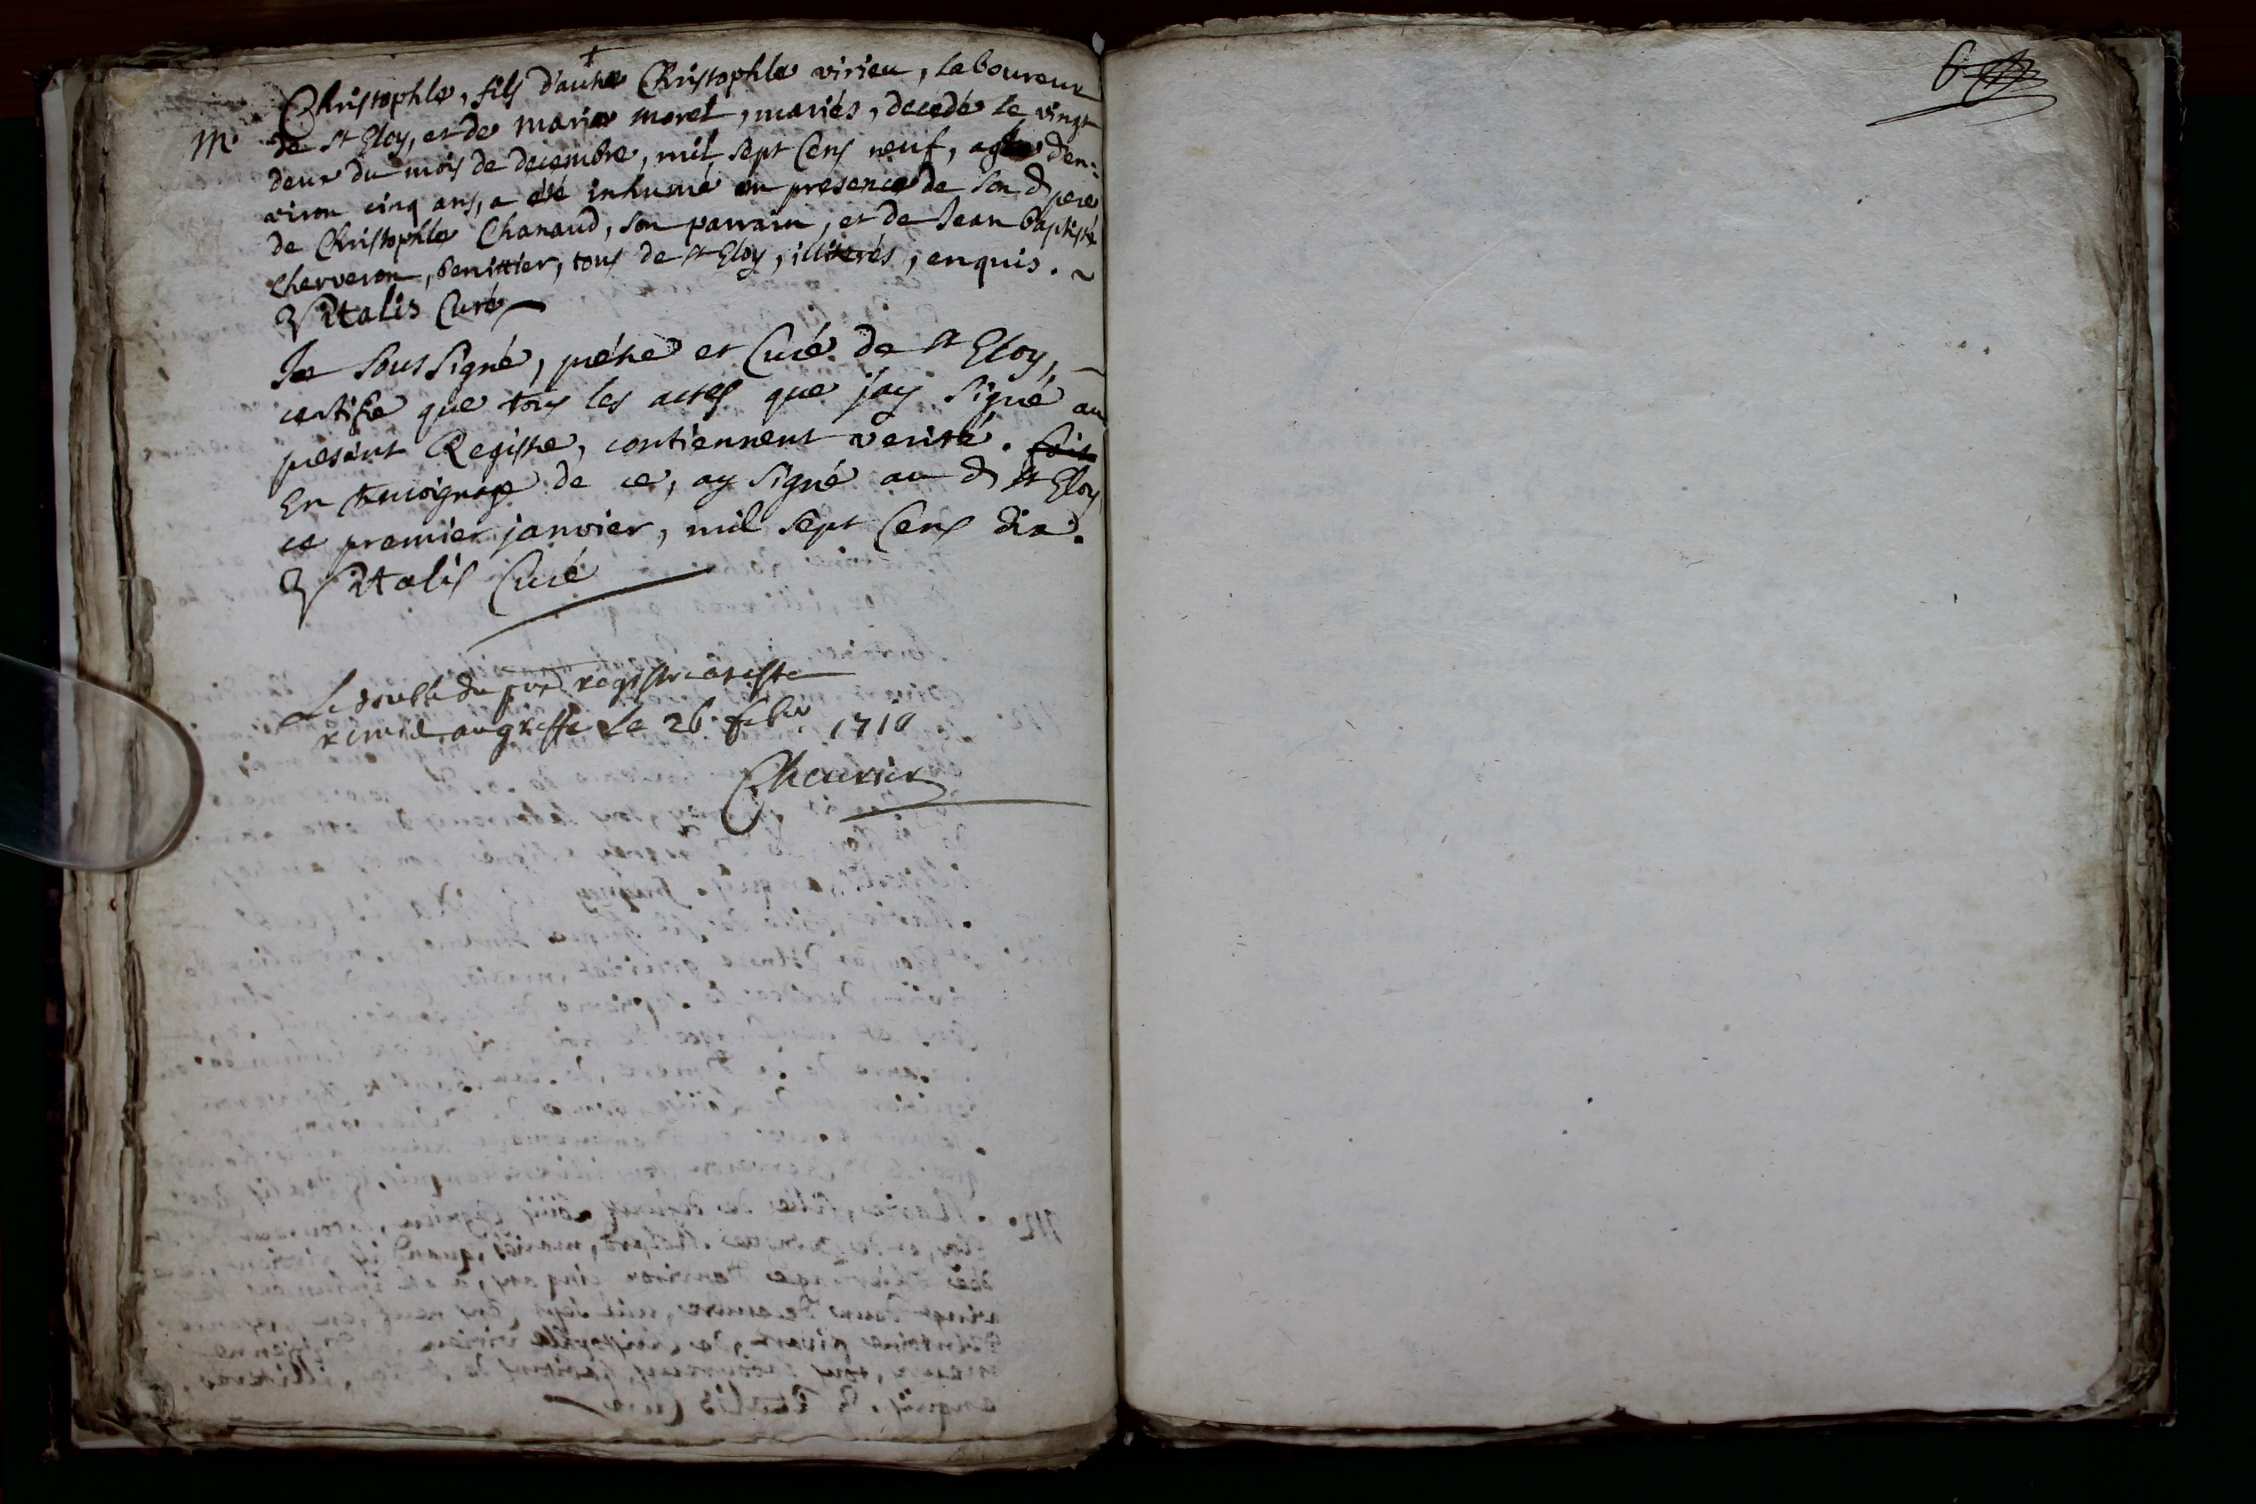 Christophle, fils d'autre Christophle virieu, laboureur
M. de St Eloy, et de marie moret, mariés, decedé le vingt
deux du mois de decembre, mil sept cens neuf, agé d'en-
viron cinq ans, a été inhumé en presence de son d pere
de Christophle Chanaud, son parrain, et de Jean baptiste
cherveron, benittier, tous de St Eloy, illiterés, enquis. ~
Vitalis Curé
Je soussigné, prétre et Curé de St Eloy,
certifie que tous les actes que jay signé au
present Registre, contiennent verité. fait
En temoignage de ce, ay signé au d St Eloy
ce premier janvier, mil sept cens dix.
Vitalis Curé
Le double du pnt registre a esté
remis au greffe le 26. febr 1710
6